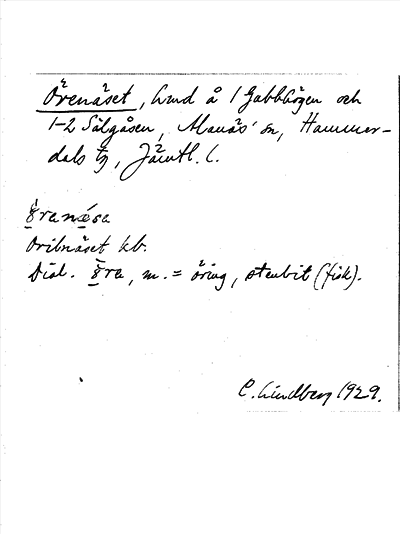 Örenäset, hmd å 1 Gabbhögen och
1-2 Sälgåsen, Monäs' sn, Hammer-
dals tg, Jämtl. l.
öranæsa
Oribnäset kb.
Dial. öra, m. = öring, stenbit (fisk).
C. Lindberg 1929.